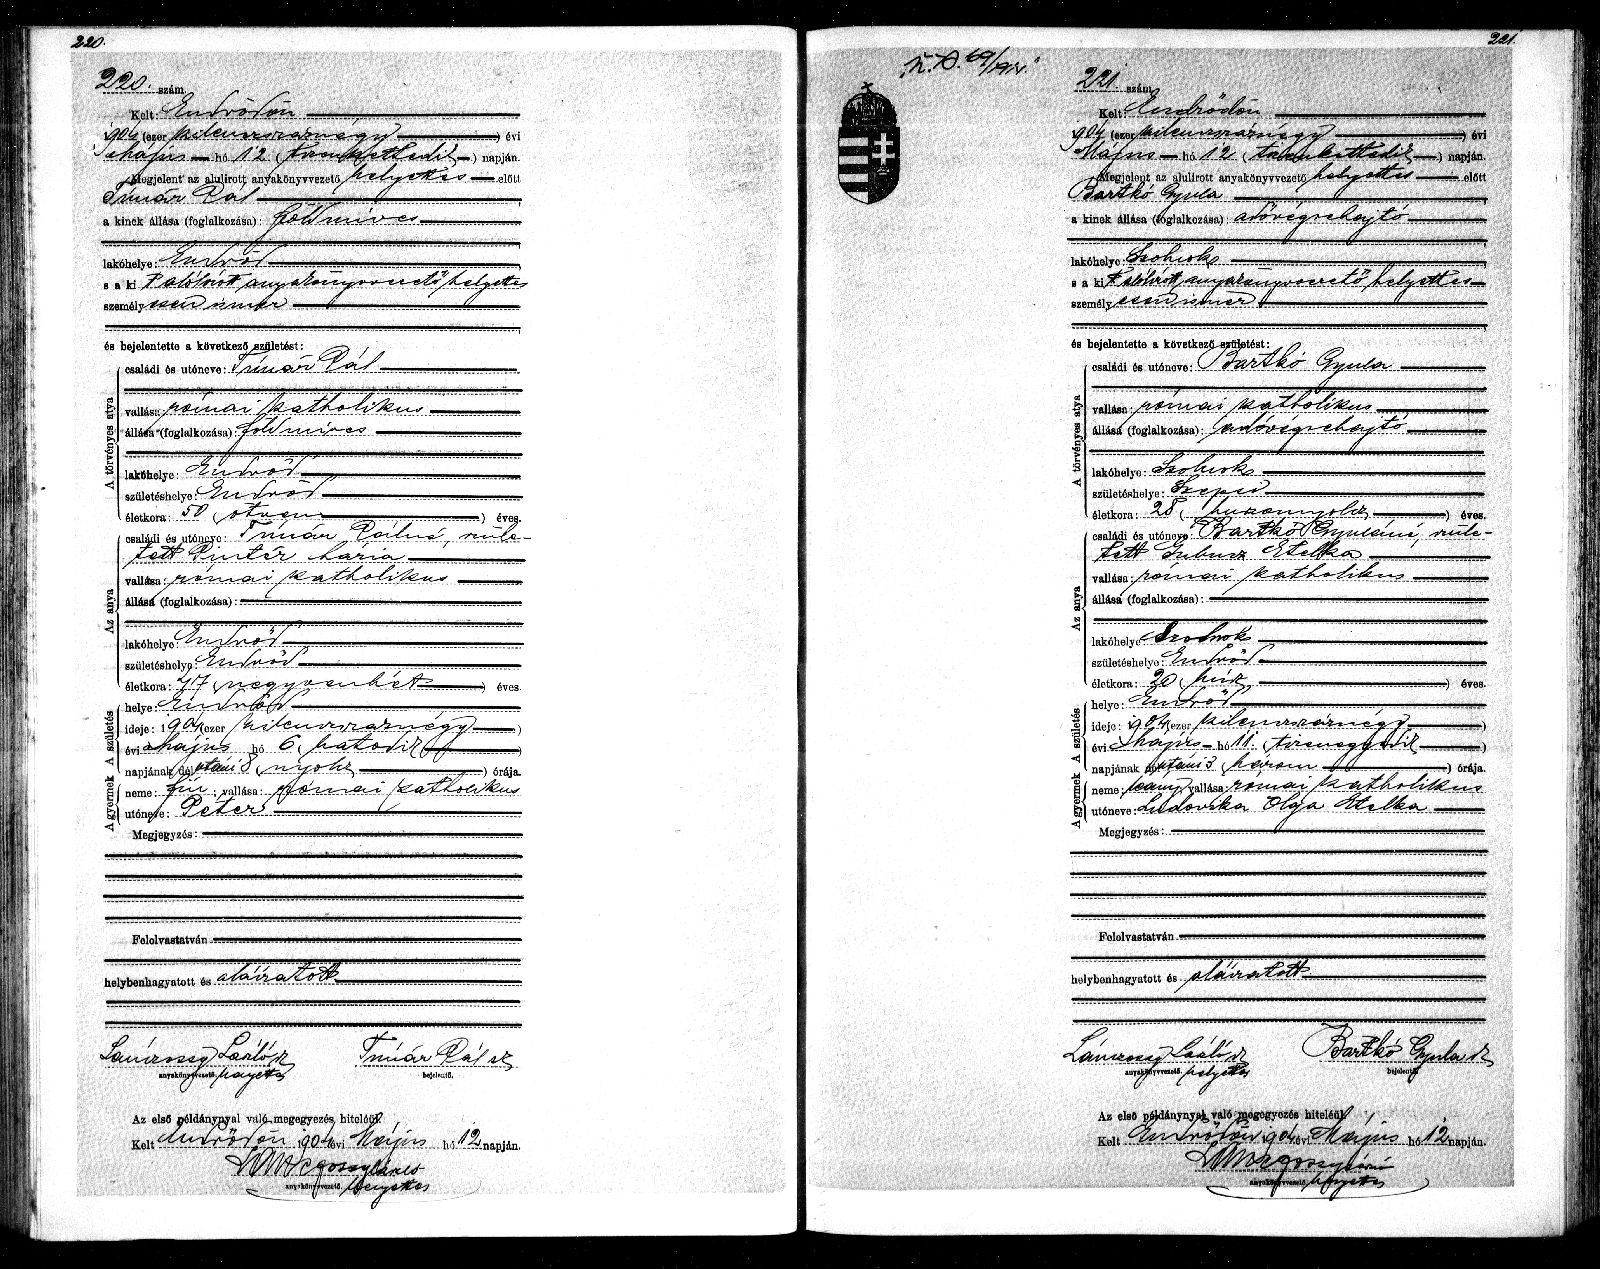 220.
220. szám
Kelt: Endrődön
1904 (ezer kilenczszáznégy) évi
Május hó 12 (tizenkettedik) napján.
Megjelent az alulirott anyakönyvvezető helyettes előtt
Timár Pál
a kinek állása (foglalkozása): földmíves
lakóhelye: Endrőd
s a ki t alólirott anyakönyvvezető helyettes
személyesen ismer
és bejelentette a következő születést:
A törvényes atya
családi és utóneve: Timár Pál
vallása: római katholikus
állása (foglalkozása): földmíves
lakóhelye: Endrőd
születéshelye: Endrőd
életkora: 50 (ötven) éves.
Az anya
családi és utóneve: Timár Pálné, szüle-
tett Pintér Mária
vallása: római katholikus
állása (foglalkozása):
lakóhelye: Endrőd
születéshelye: Endrőd
életkora: 47 (negyvenhét) éves.
A születés
helye: Endrőd
ideje: 1904 (ezer kilenczszáznégy)
évi Május hó 6 (hatodik)
napjának dél utáni 8 (nyolcz) órája.
A gyermek
neme: fiú; vallása: római katholikus
utóneve: Péter
Megjegyzés:
Felolvastatván
helybenhagyatott és aláiratott
László sk Timár Pál sk
anyakönyvvezető helyettes bejelentő.
Az első példánynyal való megegyezés hiteléül.
Kelt Endrődön 1904 évi Május hó 12 napján.
anyakönyvvezető helyettes
221.
69/1904.
221. szám
Kelt: Endrődön
1904 (ezer kilenczszáznégy) évi
Május hó 12 (tizenkettedik) napján.
Megjelent az alulirott anyakönyvvezető helyettes előtt
Bartkó Gyula
a kinek állása (foglalkozása): adóvégrehajtó
lakóhelye: Szolnok
s a ki t alólirott anyakönyvvezető helyettes
személyesen ismer
és bejelentette a következő születést:
A törvényes atya
családi és utóneve: Bartkó Gyula
vallása: római katholikus
állása (foglalkozása): adóvégrehajtó
lakóhelye: Szolnok
születéshelye:
életkora: 28 (huszonnyolcz) éves.
Az anya
családi és utóneve: Bartkó Gyuláné, szüle-
tett Etelka
vallása: római katholikus
állása (foglalkozása):
lakóhelye: Szolnok
születéshelye: Endrőd
életkora: 20 (húsz) éves.
A születés
helye: Endrőd
ideje: 1904 (ezer kilenczszáznégy)
évi Május hó 11 (tizenegyedik)
napjának dél utáni 3 (három) órája.
A gyermek
neme: leány; vallása: római katholikus
utóneve: Ludovika Olga Etelka
Megjegyzés:
Felolvastatván
helybenhagyatott és aláiratott
László sk Bartkó Gyula sk
anyakönyvvezető helyettes bejelentő.
Az első példánynyal való megegyezés hiteléül.
Kelt Endrődön 1904 évi Május hó 12 napján.
anyakönyvvezető helyettes